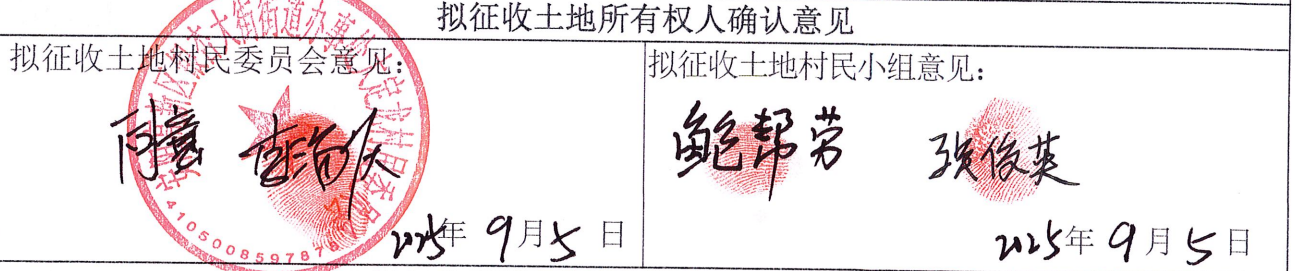 拟征收土地所有权人确认意见
拟征收土地村民委员会意见：
同意
2025年9月5日
拟征收土地村民小组意见：
鲍帮劳 张俊英
2025年9月5日